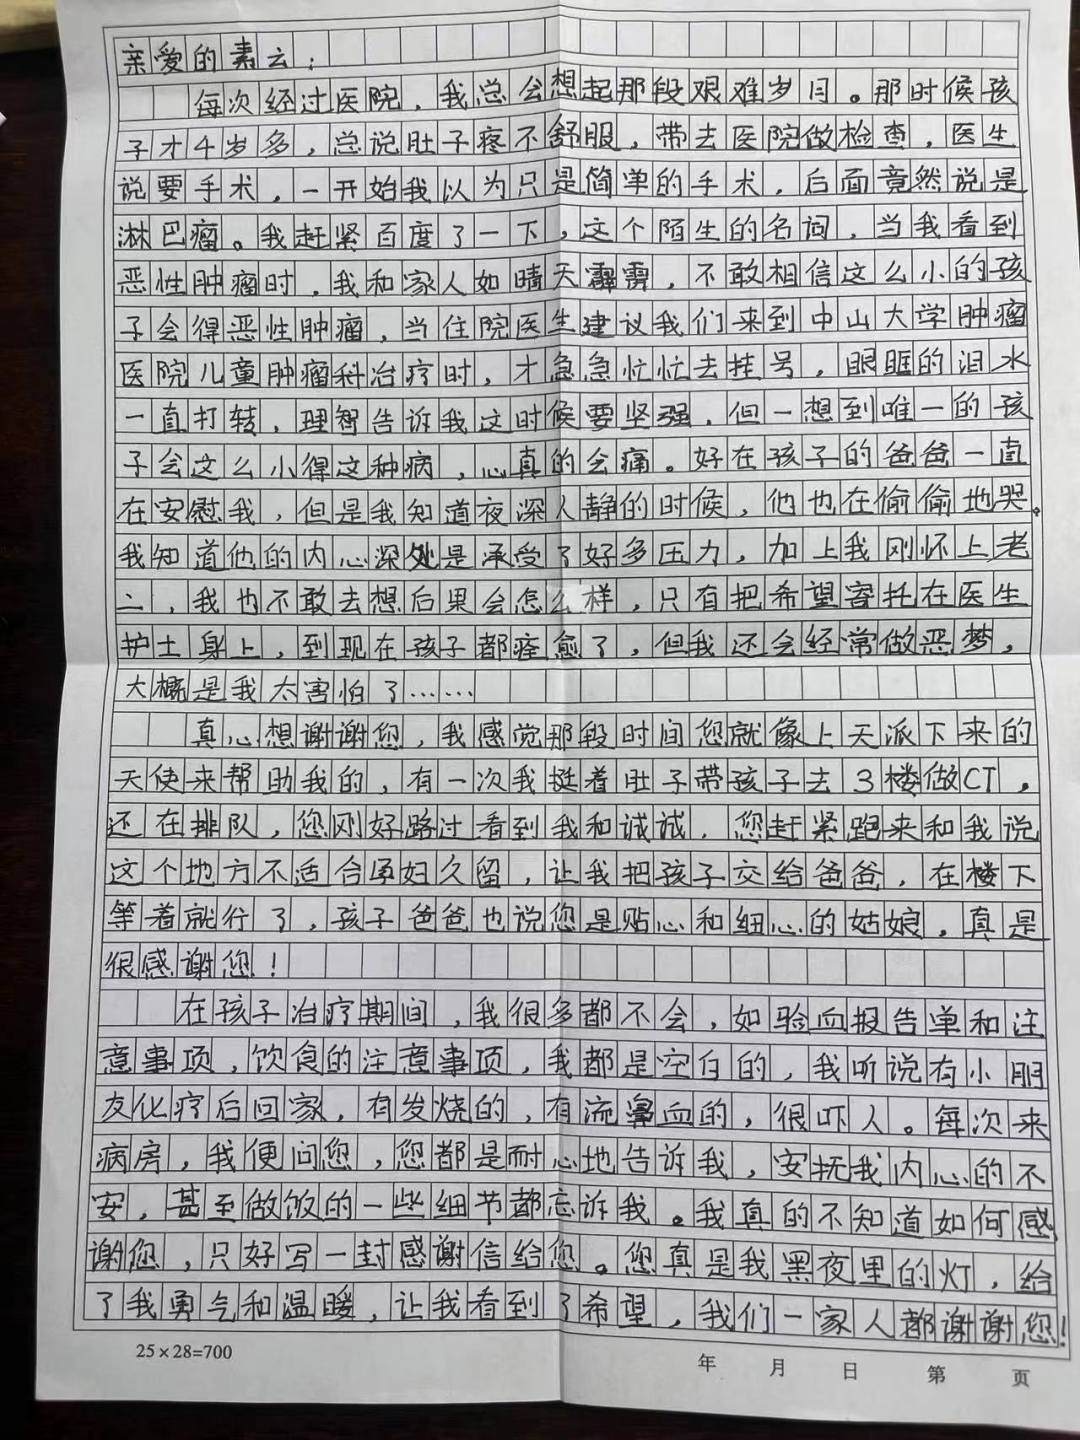 亲爱的素云：
每次经过医院，我总会想起那段艰难岁月。那时候孩
子才4岁多，总说肚子疼不舒服，带去医院做检查，医生
说要手术，一开始我以为只是简单的手术，后面竟然说是
淋巴瘤。我赶紧百度了一下，这个陌生的名词，当我看到
恶性肿瘤时，我和家人如晴天霹雳，不敢相信这么小的孩
子会得恶性肿瘤，当住院医生建议我们来到中山大学肿瘤
医院儿童肿瘤科治疗时，才急急忙忙去挂号，眼眶的泪水
一直打转，理智告诉我这时候要坚强，但一想到唯一的孩
子会这么小得这种病，心真的会痛。好在孩子的爸爸一直
在安慰我，但是我知道夜深人静的时候，他也在偷偷地哭。
我知道他的内心深处是承受了好多压力，加上我刚怀上老
二，我也不敢去想后果会怎么样，只有把希望寄托在医生
护士身上，到现在孩子都痊愈了，但我还会经常做恶梦，
大概是我太害怕了……
真心想谢谢您，我感觉那段时间您就像上天派下来的
天使来帮助我的，有一次我挺着肚子带孩子去3楼做CT，
还在排队，您刚好路过看到我和诚诚，您赶紧跑来和我说
这个地方不适合孕妇久留，让我把孩子交给爸爸，在楼下
等着就行了，孩子爸爸也说您是贴心和细心的姑娘，真是
很感谢您！
在孩子治疗期间，我很多都不会，如验血报告单和注
意事项，饮食的注意事项，我都是空白的，我听说有小朋
友化疗后回家，有发烧的，有流鼻血的，很吓人。每次来
病房，我便问您，您都是耐心地告诉我，安抚我内心的不
安，甚至做饭的一些细节都忘诉我。我真的不知道如何感
谢您，只好写一封感谢信给您。您真是我黑夜里的灯，给
了我勇气和温暖，让我看到了希望，我们一家人都谢谢您！
25×28=700
年 月 日 第 页